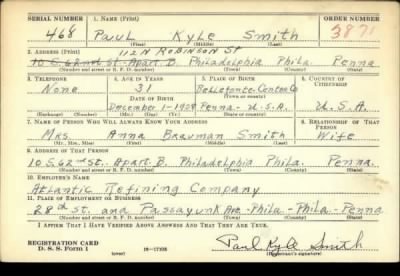 SERIAL NUMBER 1. NAME (Print) ORDER NUMBER
468 Paul Kyle Smith 3871
(First) (Middle) (Last)
112 N Robinson St
2. ADDRESS (Print)
10 S. 62nd St. Apart. B. Philadelphia Phila. Penna
(Number and street or R. F. D. number) (Town) (County) (State)
3. TELEPHONE 4. AGE IN YEARS 5. PLACE OF BIRTH 6. COUNTRY OF CITIZENSHIP
None 31 Bellefonte-Centre Co
DATE OF BIRTH (Town or county)
December-1-1908 Penna.-U.S.A. U.S.A.
(Exchange) (Number) (Mo.) (Day) (Yr.) (State or country)
7. NAME OF PERSON WHO WILL ALWAYS KNOW YOUR ADDRESS 8. RELATIONSHIP OF THAT PERSON
Mrs. Anna Brauman Smith Wife
(Mr., Mrs., Miss) (First) (Middle) (Last)
9. ADDRESS OF THAT PERSON
10 S. 62nd St. Apart. B Philadelphia Phila. Penna.
(Number and street or R. F. D. number) (Town) (County) (State)
10. EMPLOYER'S NAME
Atlantic Refining Company
11. PLACE OF EMPLOYMENT OR BUSINESS
28th St. and Passayunk Ave-Phila-Phila-Penna
(Number and street or R. F. D. number) (Town) (County) (State)
I AFFIRM THAT I HAVE VERIFIED ABOVE ANSWERS AND THAT THEY ARE TRUE.
REGISTRATION CARD
D. S. S. Form 1 (over) 16-17105 Paul Kyle Smith
(Registrant's signature)